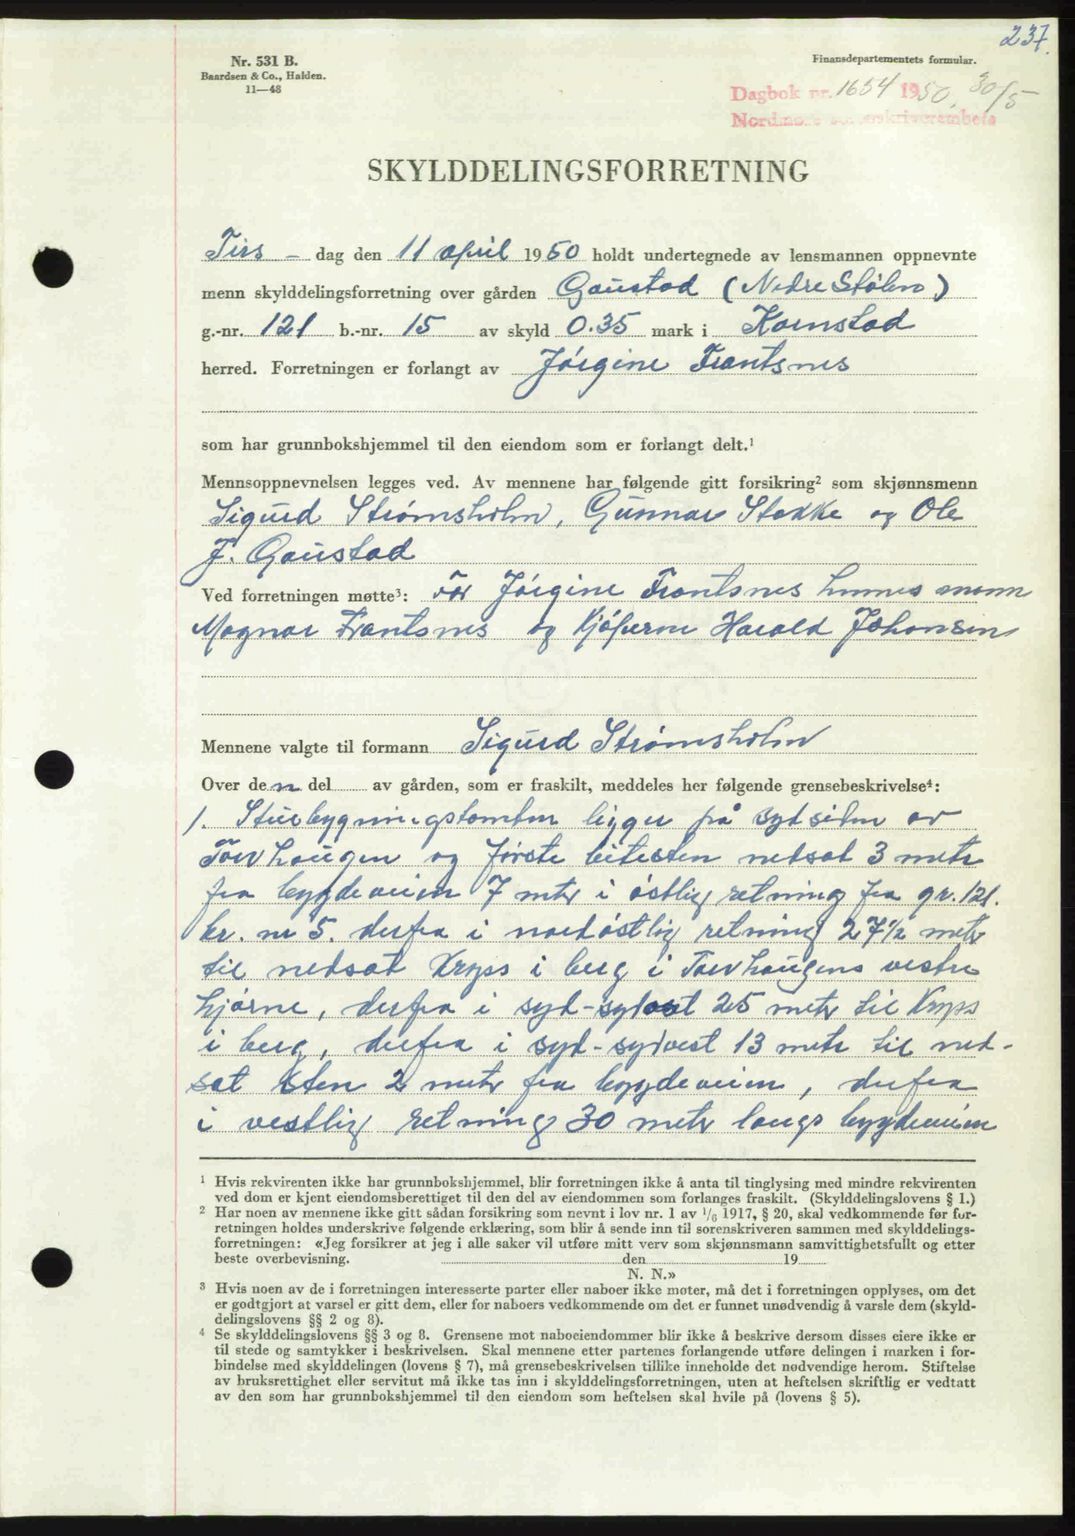 237.
Nr. 531 B.
Baardsen & Co., Halden.
11—48
Finansdepartementets formular.
Dagbok nr. 1654 1950, 30/5
Nordmøre sorenskriverembete
SKYLDDELINGSFORRETNING
Tirs - dag den 11 april 1950 holdt undertegnede av lensmannen oppnevnte
menn skylddelingsforretning over gården Gaustad (Nedre Stølen)
g.-nr. 121 b.-nr. 15 av skyld 0.35 mark i Kornstad
herred. Forretningen er forlangt av Jørgine Frantsnes
som har grunnbokshjemmel til den eiendom som er forlangt delt.¹
Mennsoppnevnelsen legges ved. Av mennene har følgende gitt forsikring² som skjønnsmenn
Sigurd Strømsholm, Gunnar Stokke og Ole
J. Gaustad
Ved forretningen møtte³: For Jørgine Frantsnes hennes mann
Magnar Frantsnes og kjøperen Harald Johansen
Mennene valgte til formann Sigurd Strømsholm
Over den del av gården, som er fraskilt, meddeles her følgende grensebeskrivelse⁴:
1. Stuebygningstomten ligger på sydsiden av
Torvhaugen og første bytesten nedsat 3 meter
fra bygdeveien 7 mtr i østlig retning fra gr. 121.
br. nr 5. derfra i nordøstlig retning 27½ metr
til nedsat Kryss i berg i Torvhaugens vestre
hjørne, derfra i syd-sydost 25 metr til Kryss
i berg, derfra i syd-sydvest 13 metr til ned-
sat sten 2 metr fra bygdeveien, derfra
i vestlig retning 30 metr langs bygdeveien
¹ Hvis rekvirenten ikke har grunnbokshjemmel, blir forretningen ikke å anta til tinglysing med mindre rekvirenten
ved dom er kjent eiendomsberettiget til den del av eiendommen som forlanges fraskilt. (Skylddelingslovens § 1.)
² Har noen av mennene ikke gitt sådan forsikring som nevnt i lov nr. 1 av 1/6 1917, § 20, skal vedkommende før for-
retningen holdes underskrive følgende erklæring, som blir å sende inn til sorenskriveren sammen med skylddelings-
forretningen: «Jeg forsikrer at jeg i alle saker vil utføre mitt verv som skjønnsmann samvittighetsfullt og etter
beste overbevisning. den 19
N. N.»
³ Hvis noen av de i forretningen interesserte parter eller naboer ikke møter, må det i forretningen opplyses, om det
er godtgjort at varsel er gitt dem, eller for naboers vedkommende om det er funnet unødvendig å varsle dem (skyld-
delingslovens §§ 2 og 8).
⁴ Se skylddelingslovens §§ 3 og 8. Grensene mot naboeiendommer blir ikke å beskrive dersom disses eiere ikke er
til stede og samtykker i beskrivelsen. Skal mennene etter partenes forlangende utføre delingen i marken i for-
bindelse med skylddelingen (lovens § 7), må grensebeskrivelsen tillike inneholde det nødvendige herom. Stiftelse
av bruksrettighet eller servitut må ikke tas inn i skylddelingsforretningen, uten at heftelsen skriftlig er vedtatt
av den som har grunnbokshjemmel til den eiendom som heftelsen skal hvile på (lovens § 5).